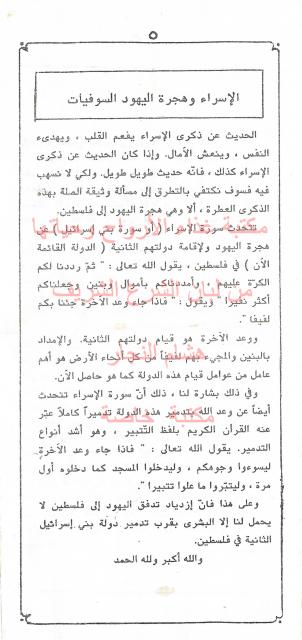 ٥
الإسراء وهجرة اليهود السوفيات
الحديث عن ذكرى الإسراء يفعم القلب ، ويهدىء
النفس ، وينعش الآمال. وإذا كان الحديث عن ذكرى
الإسراء كذلك ، فانّه حديث طويل طويل. ولكي لا نسهب
فيه فسوف نكتفي بالتطرق إلى مسألة وثيقة الصلة بهذه
الذكرى العطرة ، ألا وهي هجرة اليهود إلى فلسطين.
تتحدث سورة الإسراء ( أو سورة بني إسرائيل ) عن
هجرة اليهود ولإقامة دولتهم الثانية ( الدولة القائمة
الآن ) في فلسطين ، يقول الله تعالى : " ثمّ رددنا لكم
الكرّة عليهم ، وأمددناكم بأموال وبنين وجعلناكم
أكثر نفيرا " ويقول : " فاذا جاء وعد الآخرة جئنا بكم
لفيفا ".
ووعد الآخرة هو قيام دولتهم الثانية. والإمداد
بالبنين والمجيء بهم لفيفاً من كل أنحاء الأرض هو أهم
عامل من عوامل قيام هذه الدولة كما هو حاصل الآن.
وفي ذلك بشارة لنا ، ذلك أنّ سورة الإسراء تتحدث
أيضاً عن وعد الله بتدمير هذه الدولة تدميراً كاملاً عبّر
عنه القرآن الكريم بلفظ التّتبير ، وهو أشد أنواع
التدمير. يقول الله تعالى : " فاذا جاء وعد الآخرة
ليسوءوا وجوهكم ، وليدخلوا المسجد كما دخلوه أول
مرة ، وليتبّروا ما علوا تتبيرا ".
وعلى هذا فانّ إزدياد تدفق اليهود إلى فلسطين لا
يحمل لنا إلا البشرى بقرب تدمير دولة بني إسرائيل
الثانية في فلسطين.
والله أكبر ولله الحمد
مكتبة خاصة